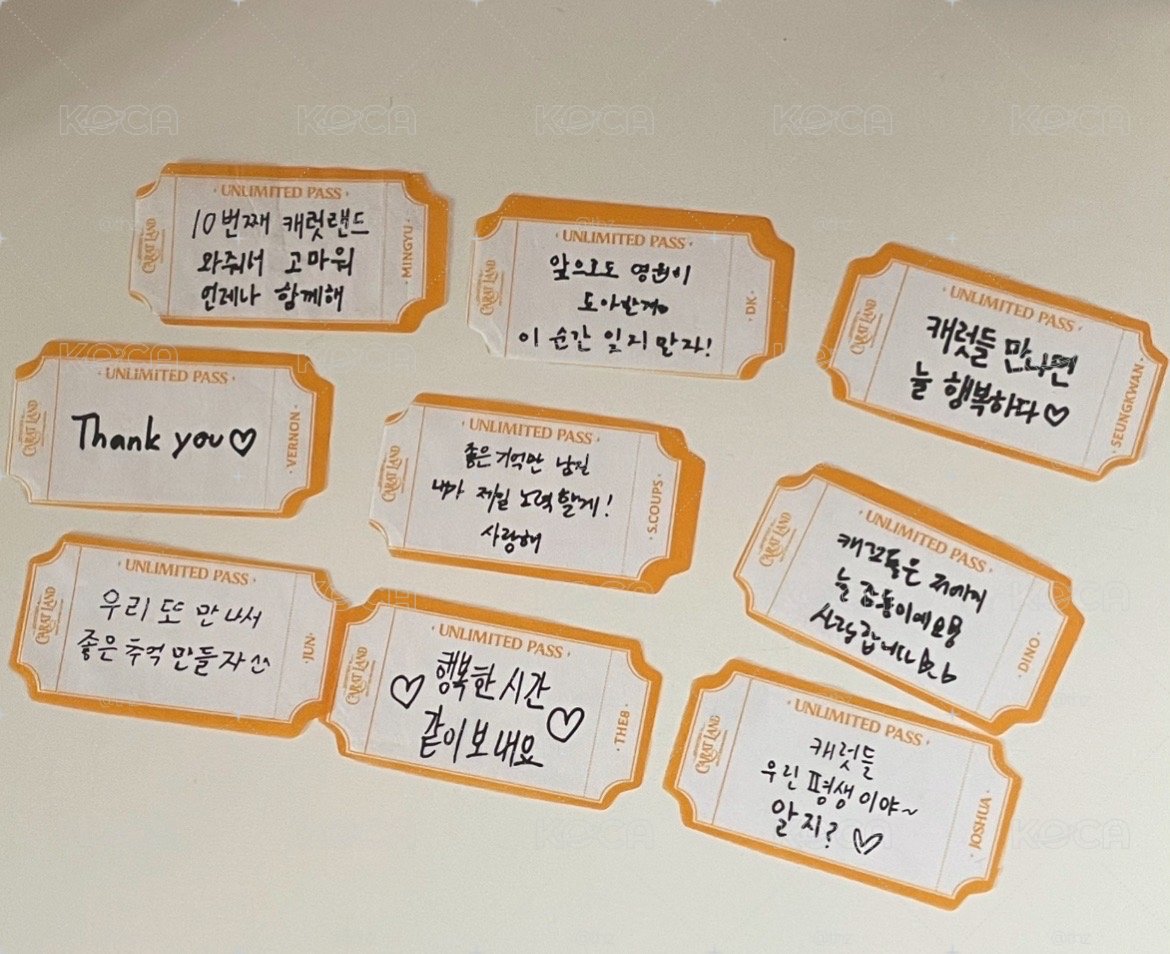 KOCA KOCA KOCA KOCA KOCA
UNLIMITED PASS
CARAT LAND
10번째 캐럿랜드
와줘서 고마워
언제나 함께해
MINGYU
UNLIMITED PASS
CARAT LAND
앞으로도 영원히
도아받게
이 순간 잊지 말자!
DK
UNLIMITED PASS
CARAT LAND
캐럿들 만나면
늘 행복하다♡
SEUNGKWAN
UNLIMITED PASS
CARAT LAND
Thank you♡
VERNON
UNLIMITED PASS
CARAT LAND
좋은 기억만 남길
내가 제일 노력할게!
사랑해
S.COUPS
UNLIMITED PASS
CARAT LAND
늘 감동이에요용
사랑합니다
DINO
UNLIMITED PASS
CARAT LAND
우리 또 만나서
좋은 추억 만들자 ㅆ
JUN
UNLIMITED PASS
CARAT LAND
♡ 행복한 시간
같이 보내요 ♡
THE8
UNLIMITED PASS
CARAT LAND
캐럿들
우린 평생이야~
알지? ♡
JOSHUA